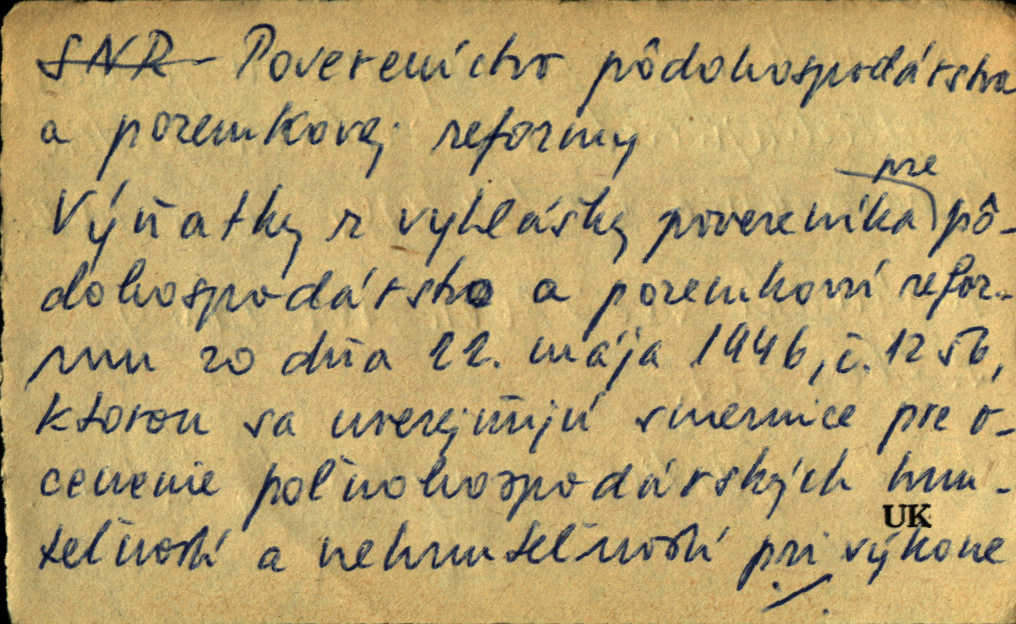 SNR - Povereníctvo pôdohospodárstva
a pozemkovej reformy
pre
Výňatky z vyhlášky povereníka pô-
dohospodárstvo a pozemkovú refor-
mu zo dňa 22. mája 1946, č. 1256,
ktorou sa uverejňujú smernice pre o-
cenenie poľnohospodárských hnu-
UK
teľností a nehnuteľností pri výkone